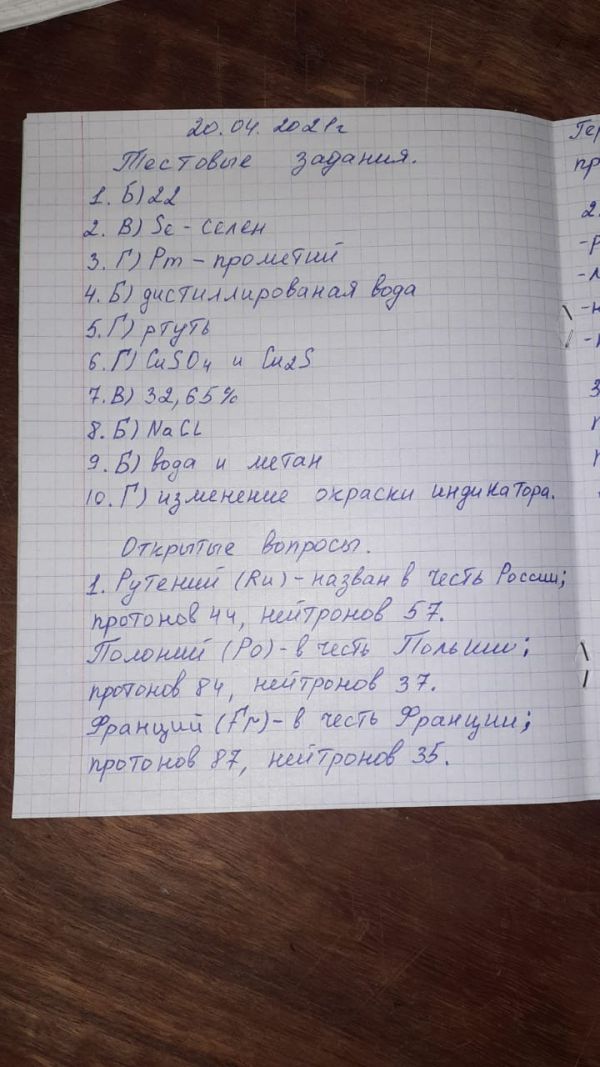 20.04.2021г
Тестовые задания.
1. Б) 22
2. В) Se - селен
3. Г) Pm - прометий
4. Б) дистиллированая вода
5. Г) ртуть
6. Г) CuSO4 и Cu2S
7. В) 32,65%
8. Б) NaCl
9. Б) вода и метан
10. Г) изменение окраски индикатора.
Открытые вопросы.
1. Рутений (Ru) - назван в честь России;
протонов 44, нейтронов 57.
Полоний (Po) - в честь Польши;
протонов 84, нейтронов 37.
Франций (Fr) - в честь Франции;
протонов 87, нейтронов 35.
Гер
пр
2.
3